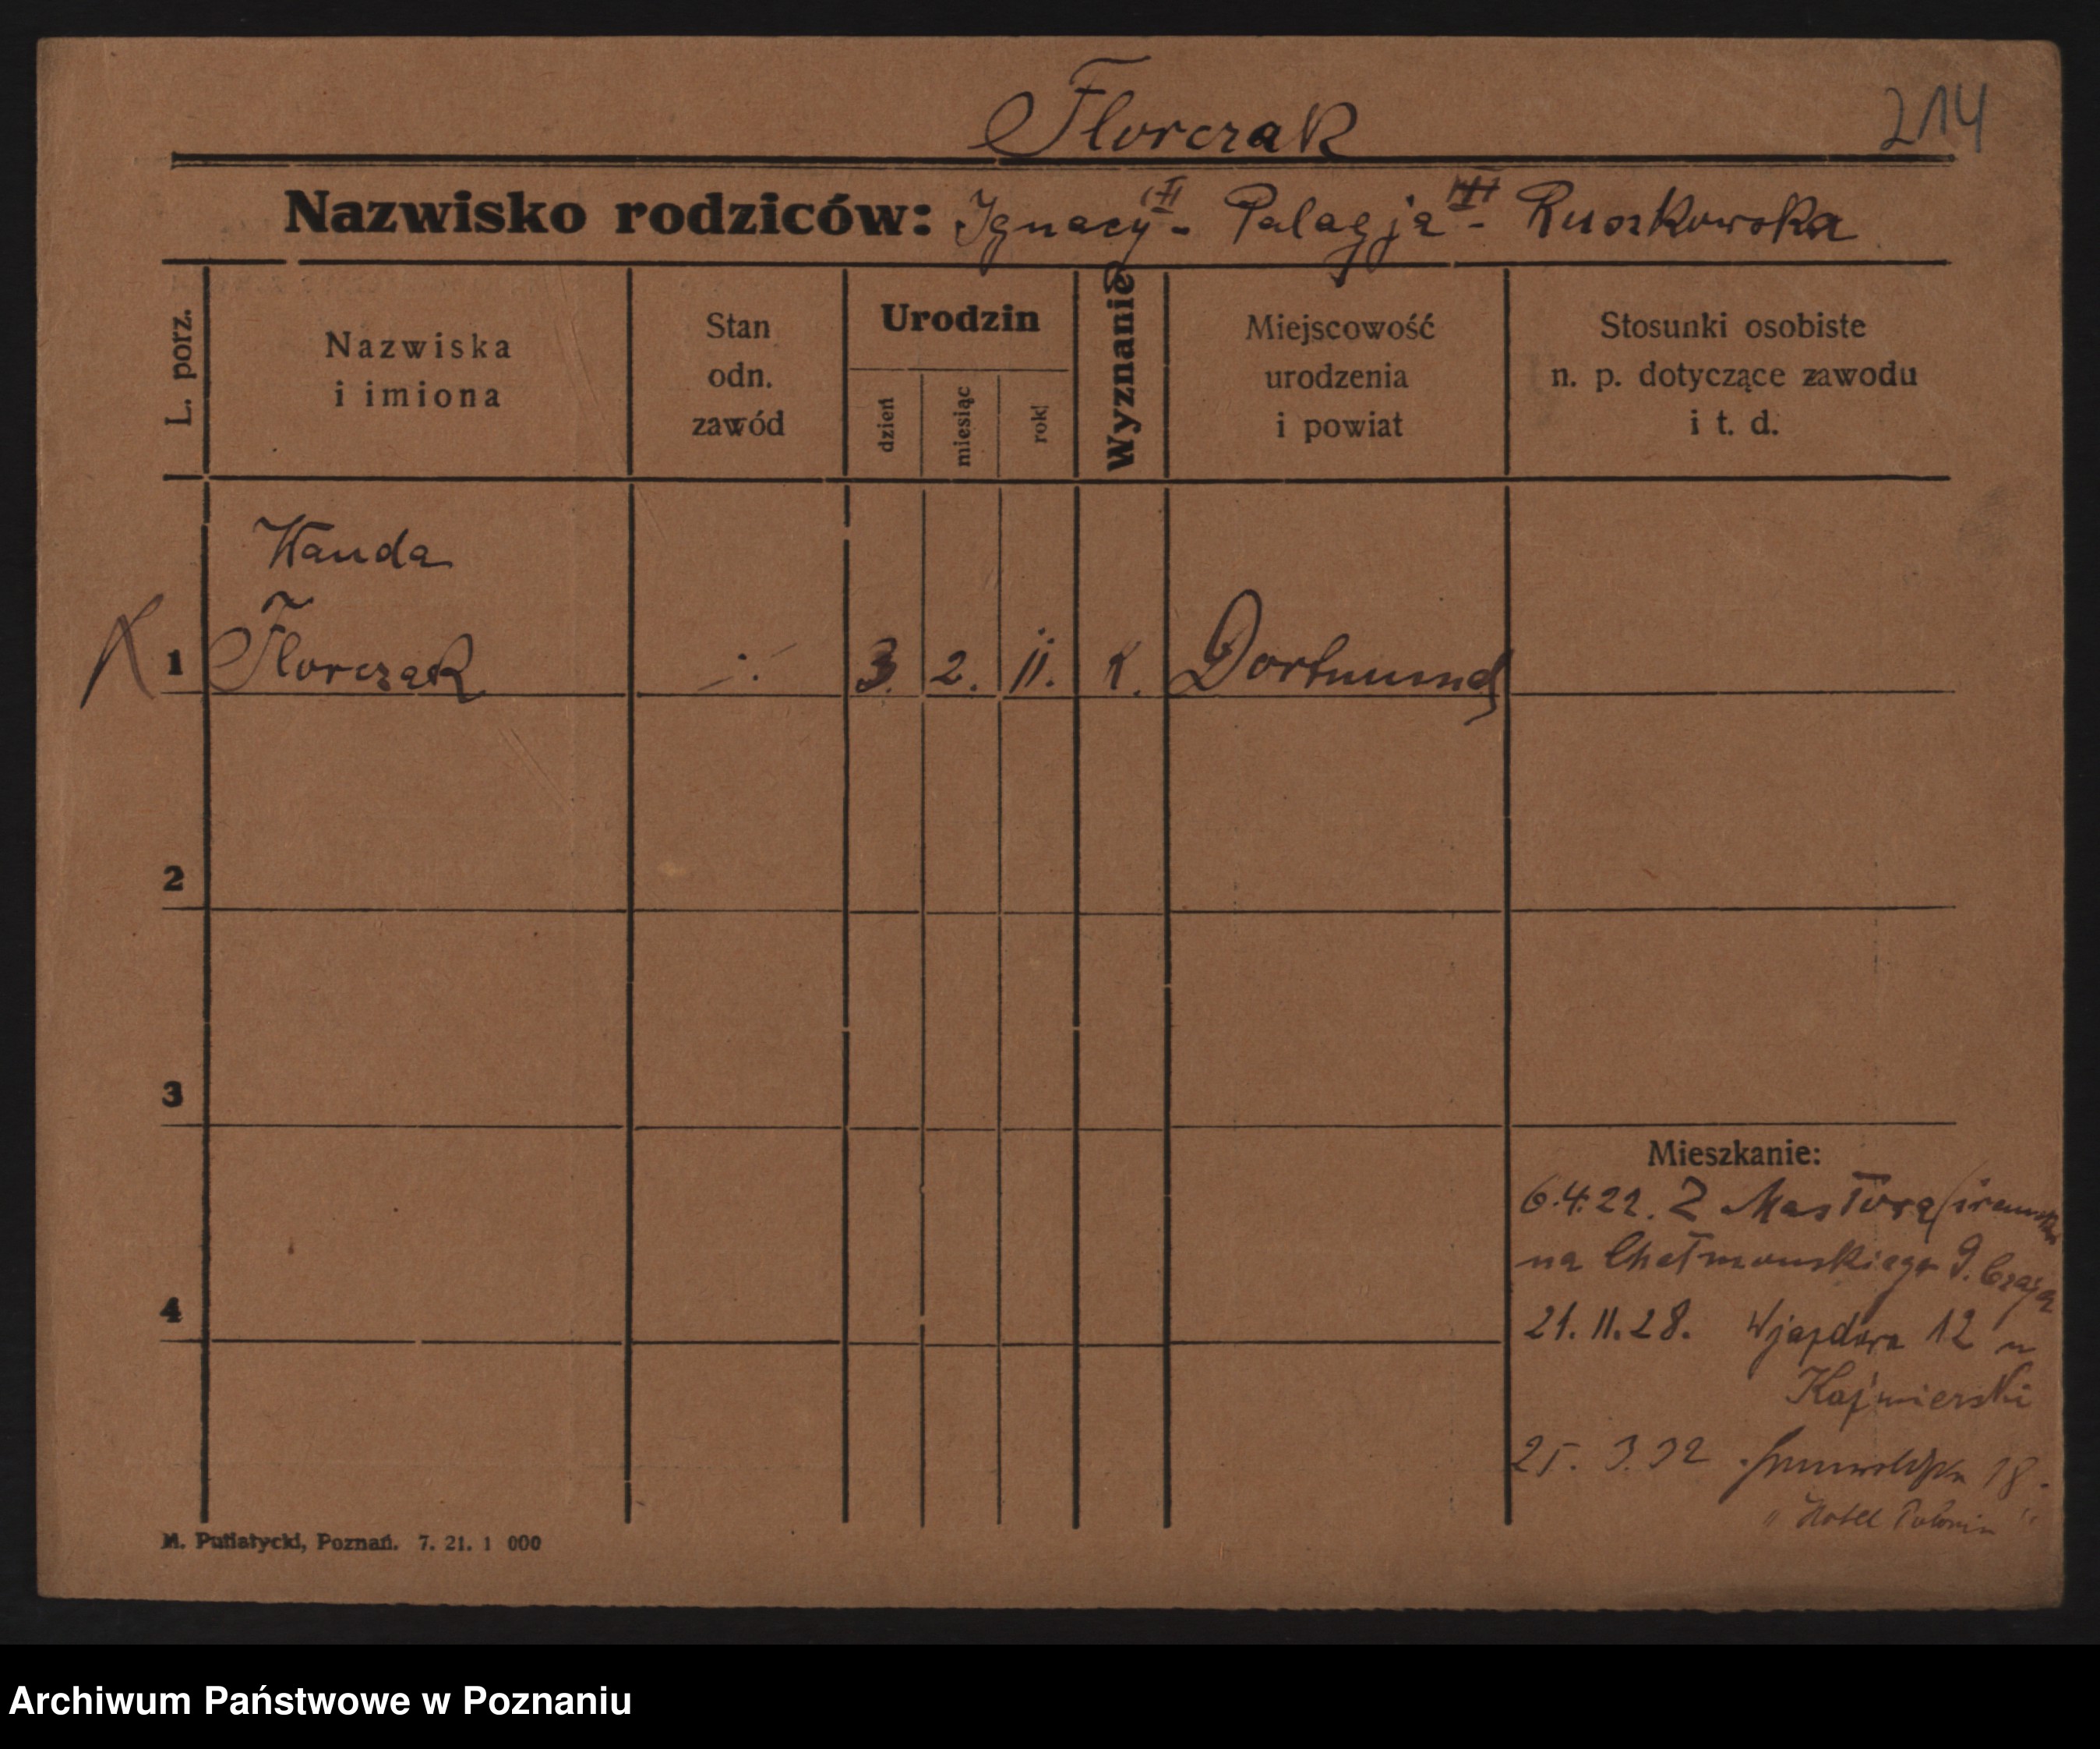 Florczak
214
Nazwisko rodziców: Ignacy - Pelagja - Ruszkowska
L. porz.
Nazwiska
i imiona
Stan
odn.
zawód
Urodzin
dzień
miesiąc
rok
Wyznanie
Miejscowość
urodzenia
i powiat
Stosunki osobiste
n. p. dotyczące zawodu
i t. d.
Wanda
1 Florczak 3. 2. 11. K. Dortmund
2
3
4
Mieszkanie:
6.4.22. Z
na Chełmonskiego 9.
21.11.28. Wjazdowa 12 u
Kaźmierski
25. 3.32 18.
"Hotel Polonia"
M. Putiatycki, Poznań. 7. 21. 1 000
Archiwum Państwowe w Poznaniu